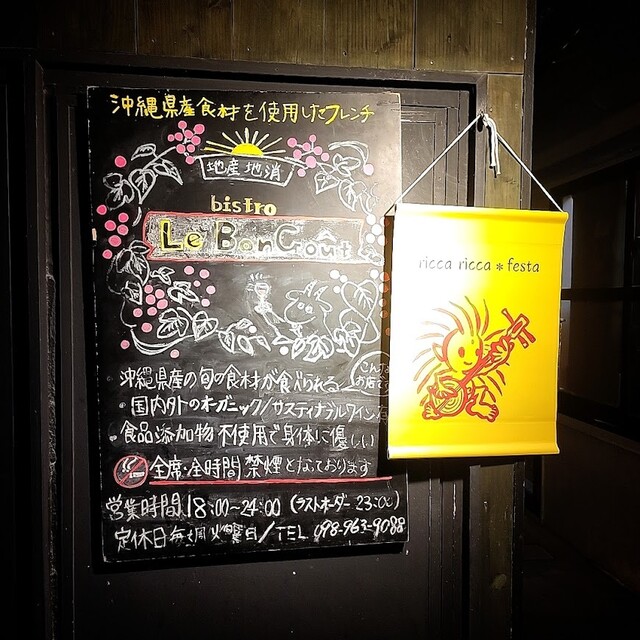 沖縄県産食材を使用したフレンチ
地産地消
bistro
Le Bon Goût
沖縄県産の旬の食材が食べられる
こんな
お店です
・国内外のオーガニック/サスティナブルワイン
・食品添加物不使用で身体に優しい
全席・全時間禁煙となっております
営業時間 18:00~24:00 (ラストオーダー 23:00)
定休日 毎週火曜日/TEL 098-963-9088
ricca ricca*festa